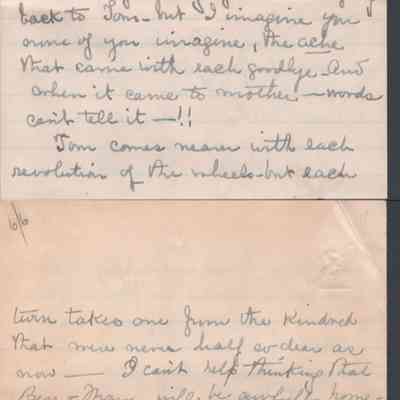 back to Tom - but I imagine you
none of you imagine, the ache
that came with each goodbye. And
when it came to mother - words
can't tell it - !!
Tom comes nearer with each
revolution of the wheels - but each
6/6
turn takes one from the kindred
that were never half so dear as
now - I can't help thinking that
Bess + Mam will be awfully home-